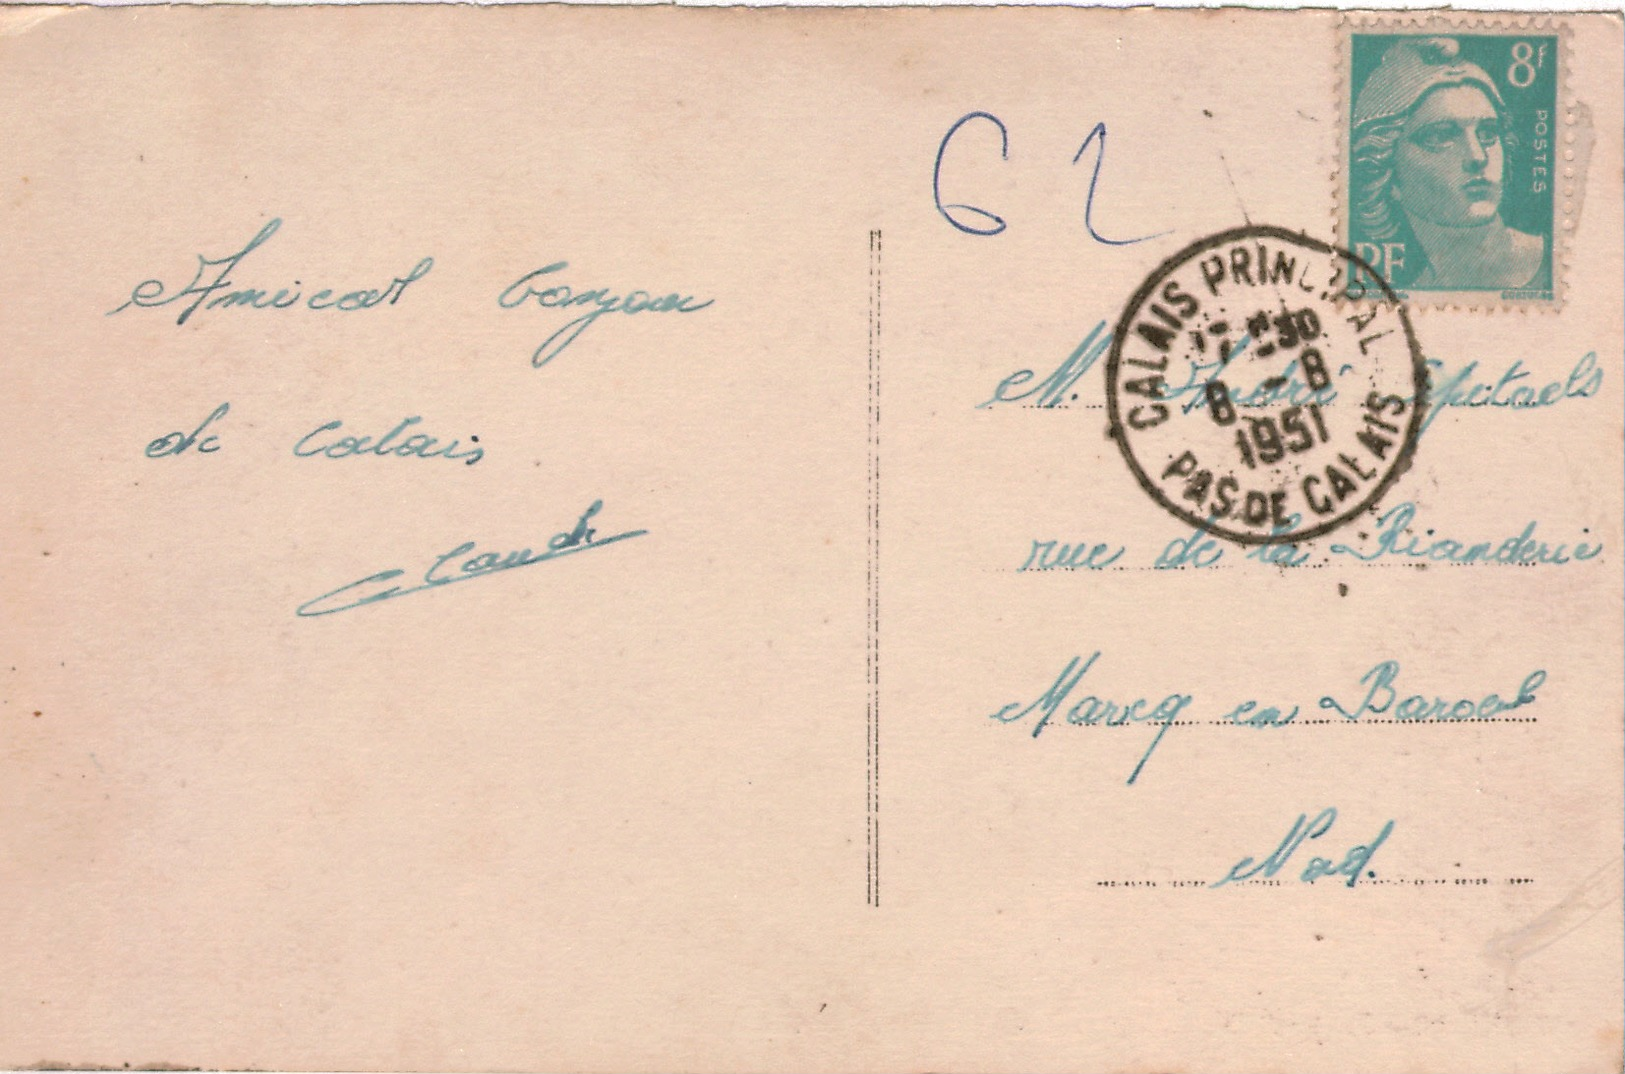 Amical bonjour
de Calais
Claude
62
8f
POSTES
RF
CALAIS PRINCIPAL
8 - 8
1951
PAS DE CALAIS
M. André Spitaels
rue de la Rianderie
Marcq en Baroeul
Nord.